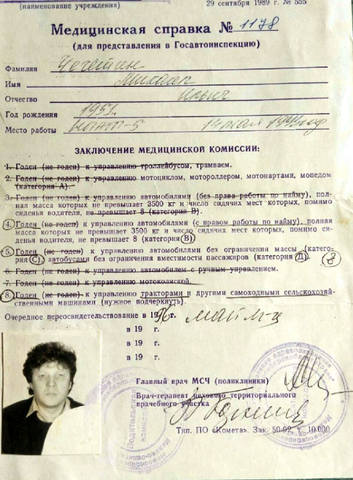 (наименование учреждения)
29 сентября 1989 г. № 555
Медицинская справка № 1178
(для представления в Госавтоинспекцию)
Фамилия
Имя Михаил
Отчество Ильич
Год рождения 1951
Место работы
ЗАКЛЮЧЕНИЕ МЕДИЦИНСКОЙ КОМИССИИ:
1. Годен (не годен) к управлению троллейбусом, трамваем.
2. Годен (не годен) к управлению мотоциклом, мотороллером, мотонартами, мопедом
(категория А)
3. Годен (не годен) к управлению автомобилями (без права работы по найму), пол-
ная масса которых не превышает 3500 кг и число сидячих мест которых, помимо
сиденья водителя, не превышает 8 (категория В).
4. Годен (не годен) к управлению автомобилями (с правом работы по найму), полная
масса которых не превышает 3500 кг и число сидячих мест которых, помимо си-
денья водителя, не превышает 8 (категория В)
5. Годен (не годен) к управлению автомобилями без ограничения массы (катего-
рия С) автобусами без ограничения вместимости пассажиров (категория Д). 8
6. Годен (не годен) к управлению автомобилем с ручным управлением.
7. Годен (не годен) к управлению мотоколяской.
8. Годен (не годен) к управлению тракторами и другими самоходными сельскохозяй-
ственными машинами (нужное подчеркнуть).
Очередное переосвидетельствование в 1996 г.
в 19 г.
в 19 г.
в 19 г.
Главный врач МСЧ (поликлиники)
Врач-терапевт цехового территориального
врачебного участка
Тип. ПО «Комета». Зак. 50-92. т. 10.000